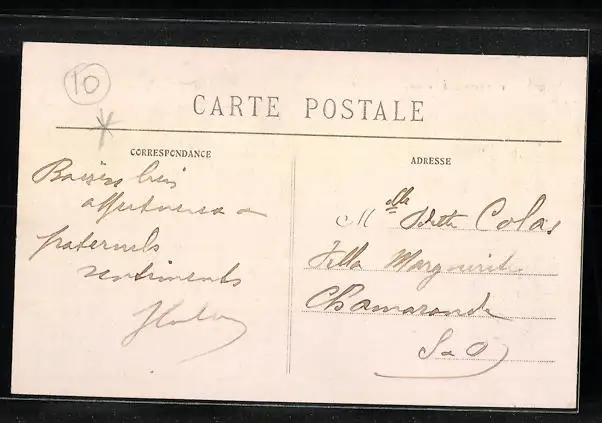 10
CARTE POSTALE
CORRESPONDANCE
ADRESSE
Baisers bien
affectueux &
fraternels
sentiments
Mlle Odette Colas
Villa Marguerite
Chamarande
S & O